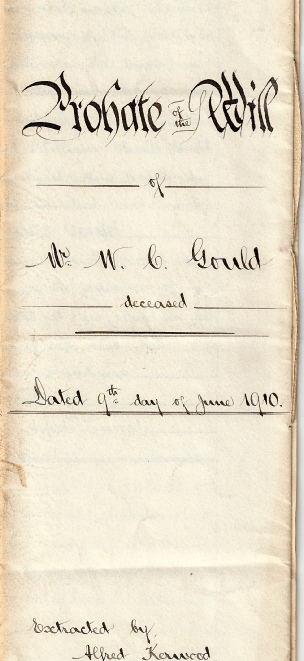 Probate of the Will
of
Mr. W. C. Gould
deceased
Dated 9th day of June 1910.
Extracted by
Alfred Kerwood